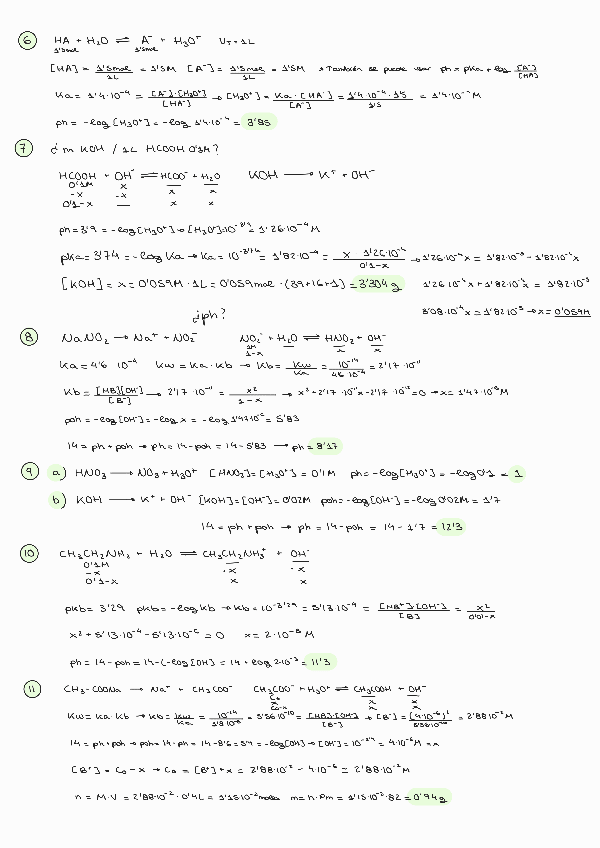 6 HA + H₂O ⇌ A⁻ + H₃O⁺ V_T = 1L
1'5mol 1'5mol
[HA] = 1'5mol/1L = 1'5M [A⁻] = 1'5mol/1L = 1'5M * También se puede usar ph = pka + log [A⁻]/[HA]
Ka = 1'4·10⁻⁴ = [A⁻]·[H₃O⁺]/[HA⁻] → [H₃O⁺] = Ka·[HA⁻]/[A⁻] = 1'4·10⁻⁴·1'5/1'5 = 1'4·10⁻⁴ M
ph = -log [H₃O⁺] = -log 1'4·10⁻⁴ = 3'85
7 ¿m KOH / 1L HCOOH 0'1M?
HCOOH + OH⁻ ⇌ HCOO⁻ + H₂O KOH → K⁺ + OH⁻
0'1M x
-x -x x x
0'1-x — x x
ph = 3'9 = -log [H₃O⁺] → [H₃O⁺] = 10⁻³'⁹ = 1'26·10⁻⁴ M
pKa = 3'74 = -log Ka → Ka = 10⁻³'⁷⁴ = 1'82·10⁻⁴ = x · 1'26·10⁻⁴/0'1-x → 1'26·10⁻⁴x = 1'82·10⁻⁵ - 1'82·10⁻⁴x
[KOH] = x = 0'059M · 1L = 0'059mol · (39+16+1) = 3'304 g 1'26·10⁻⁴x + 1'82·10⁻⁴x = 1'82·10⁻⁵
¿ph? 3'08·10⁻⁴x = 1'82·10⁻⁵ → x = 0'059M
8 NaNO₂ → Na⁺ + NO₂⁻ NO₂⁻ + H₂O ⇌ HNO₂ + OH⁻
1M
1-x — x x
Ka = 4'6·10⁻⁴ Kw = Ka·Kb → Kb = Kw/Ka = 10⁻¹⁴/4'6·10⁻⁴ = 2'17·10⁻¹¹
Kb = [HB][OH⁻]/[B⁻] → 2'17·10⁻¹¹ = x²/1-x → x² + 2'17·10⁻¹¹x - 2'17·10⁻¹¹ = 0 → x = 1'47·10⁻⁶ M
poh = -log [OH⁻] = -log x = -log 1'47·10⁻⁶ = 5'83
14 = ph + poh → ph = 14 - poh = 14 - 5'83 → ph = 8'17
9 a) HNO₃ → NO₃ + H₃O⁺ [HNO₃] = [H₃O⁺] = 0'1M ph = -log [H₃O⁺] = -log 0'1 = 1
b) KOH → K⁺ + OH⁻ [KOH] = [OH⁻] = 0'02M poh = -log [OH⁻] = -log 0'02M = 1'7
14 = ph + poh → ph = 14 - poh = 14 - 1'7 = 12'3
10 CH₃CH₂NH₂ + H₂O ⇌ CH₃CH₂NH₃⁺ + OH⁻
0'1M
-x · x · x
0'1-x x x
pkb = 3'29 pkb = -log Kb → Kb = 10⁻³'²⁹ = 5'13·10⁻⁴ = [HB⁺]·[OH⁻]/[B] = x²/0'01-x
x² + 5'13·10⁻⁴ - 5'13·10⁻⁶ = 0 x = 2·10⁻³ M
ph = 14 - poh = 14 - (-log [OH]) = 14 + log 2·10⁻³ = 11'3
11 CH₃-COONa → Na⁺ + CH₃COO⁻ CH₃COO⁻ + H₃O⁺ ⇌ CH₃COOH + OH⁻
C₀
C₀-x x x
Kw = Ka·Kb → Kb = Kw/Ka = 10⁻¹⁴/1'8·10⁻⁵ = 5'56·10⁻¹⁰ = [HB]·[OH⁻]/[B⁻] → [B⁻] = (4·10⁻⁶)²/5'56·10⁻¹⁰ = 2'88·10⁻² M
14 = ph + poh → poh = 14 - ph = 14 - 8'6 = 5'4 = -log [OH] → [OH⁻] = 10⁻⁵'⁴ = 4·10⁻⁶ M = x
[B⁺] = C₀ - x → C₀ = [B⁺] + x = 2'88·10⁻² - 4·10⁻⁶ = 2'88·10⁻² M
n = M·V = 2'88·10⁻² · 0'4L = 1'15·10⁻² moles m = n·Pm = 1'15·10⁻²·82 = 0'94 g